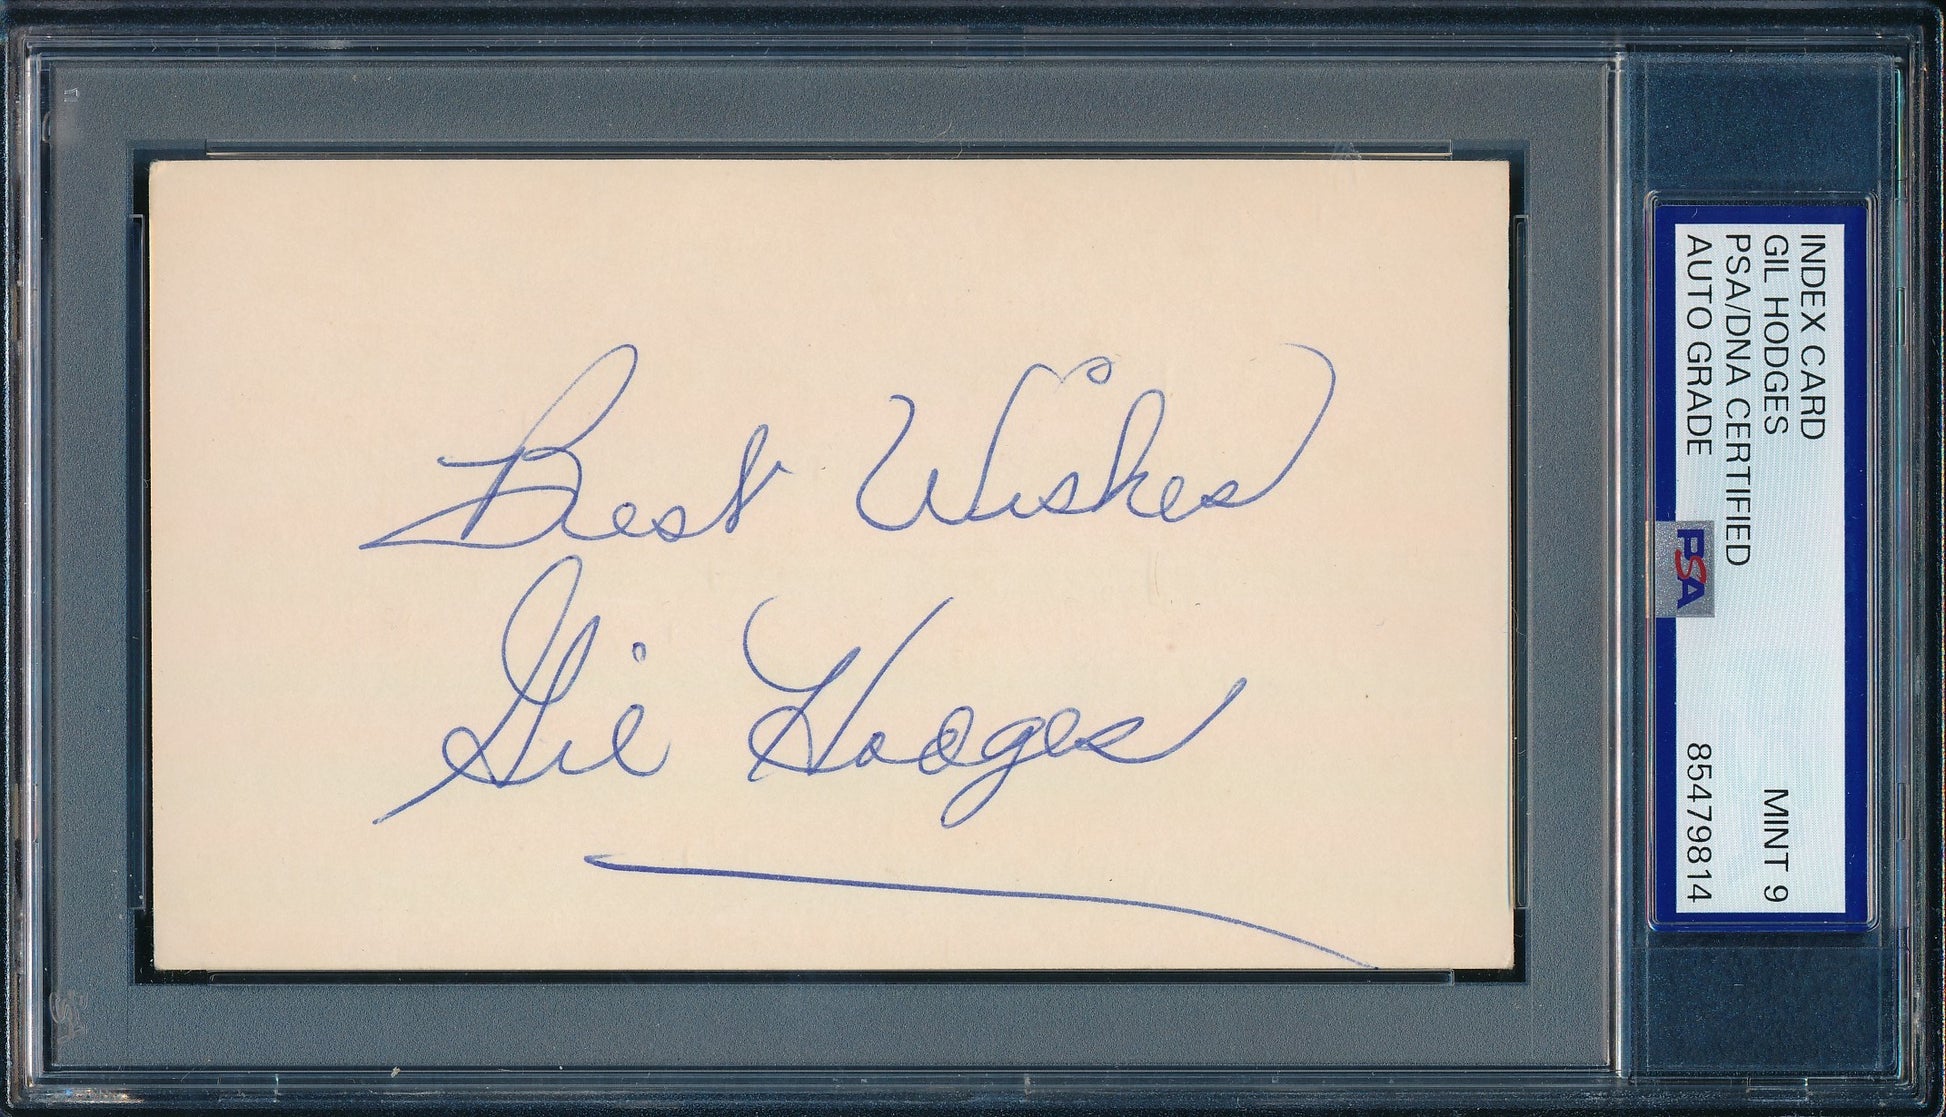 Best Wishes
Gil Hodges
INDEX CARD
GIL HODGES
PSA/DNA CERTIFIED MINT 9
AUTO GRADE 85479814
PSA